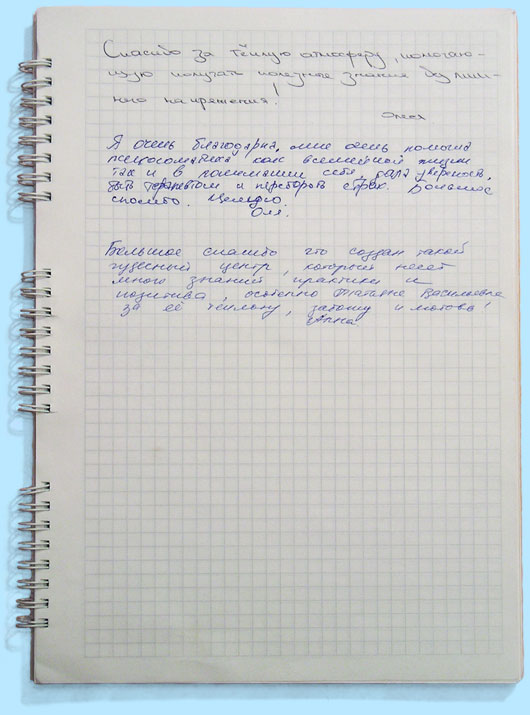 Спасибо за тёплую атмосферу, помогаю-
щую получать полезные знания без лиш-
него напряжения!
Я очень благодарна, мне очень помогла
психосоматика как в семейной жизни
так и в понимании себя, дала уверенность,
быть терапевтом и перебороть страх. Большое
спасибо.
Оля.
Большое спасибо что создан такой
чудесный центр, который несёт
много знаний практики и
позитива, особенно Татьяне Васильевне
за её теплоту, заботу и любовь!
Анна